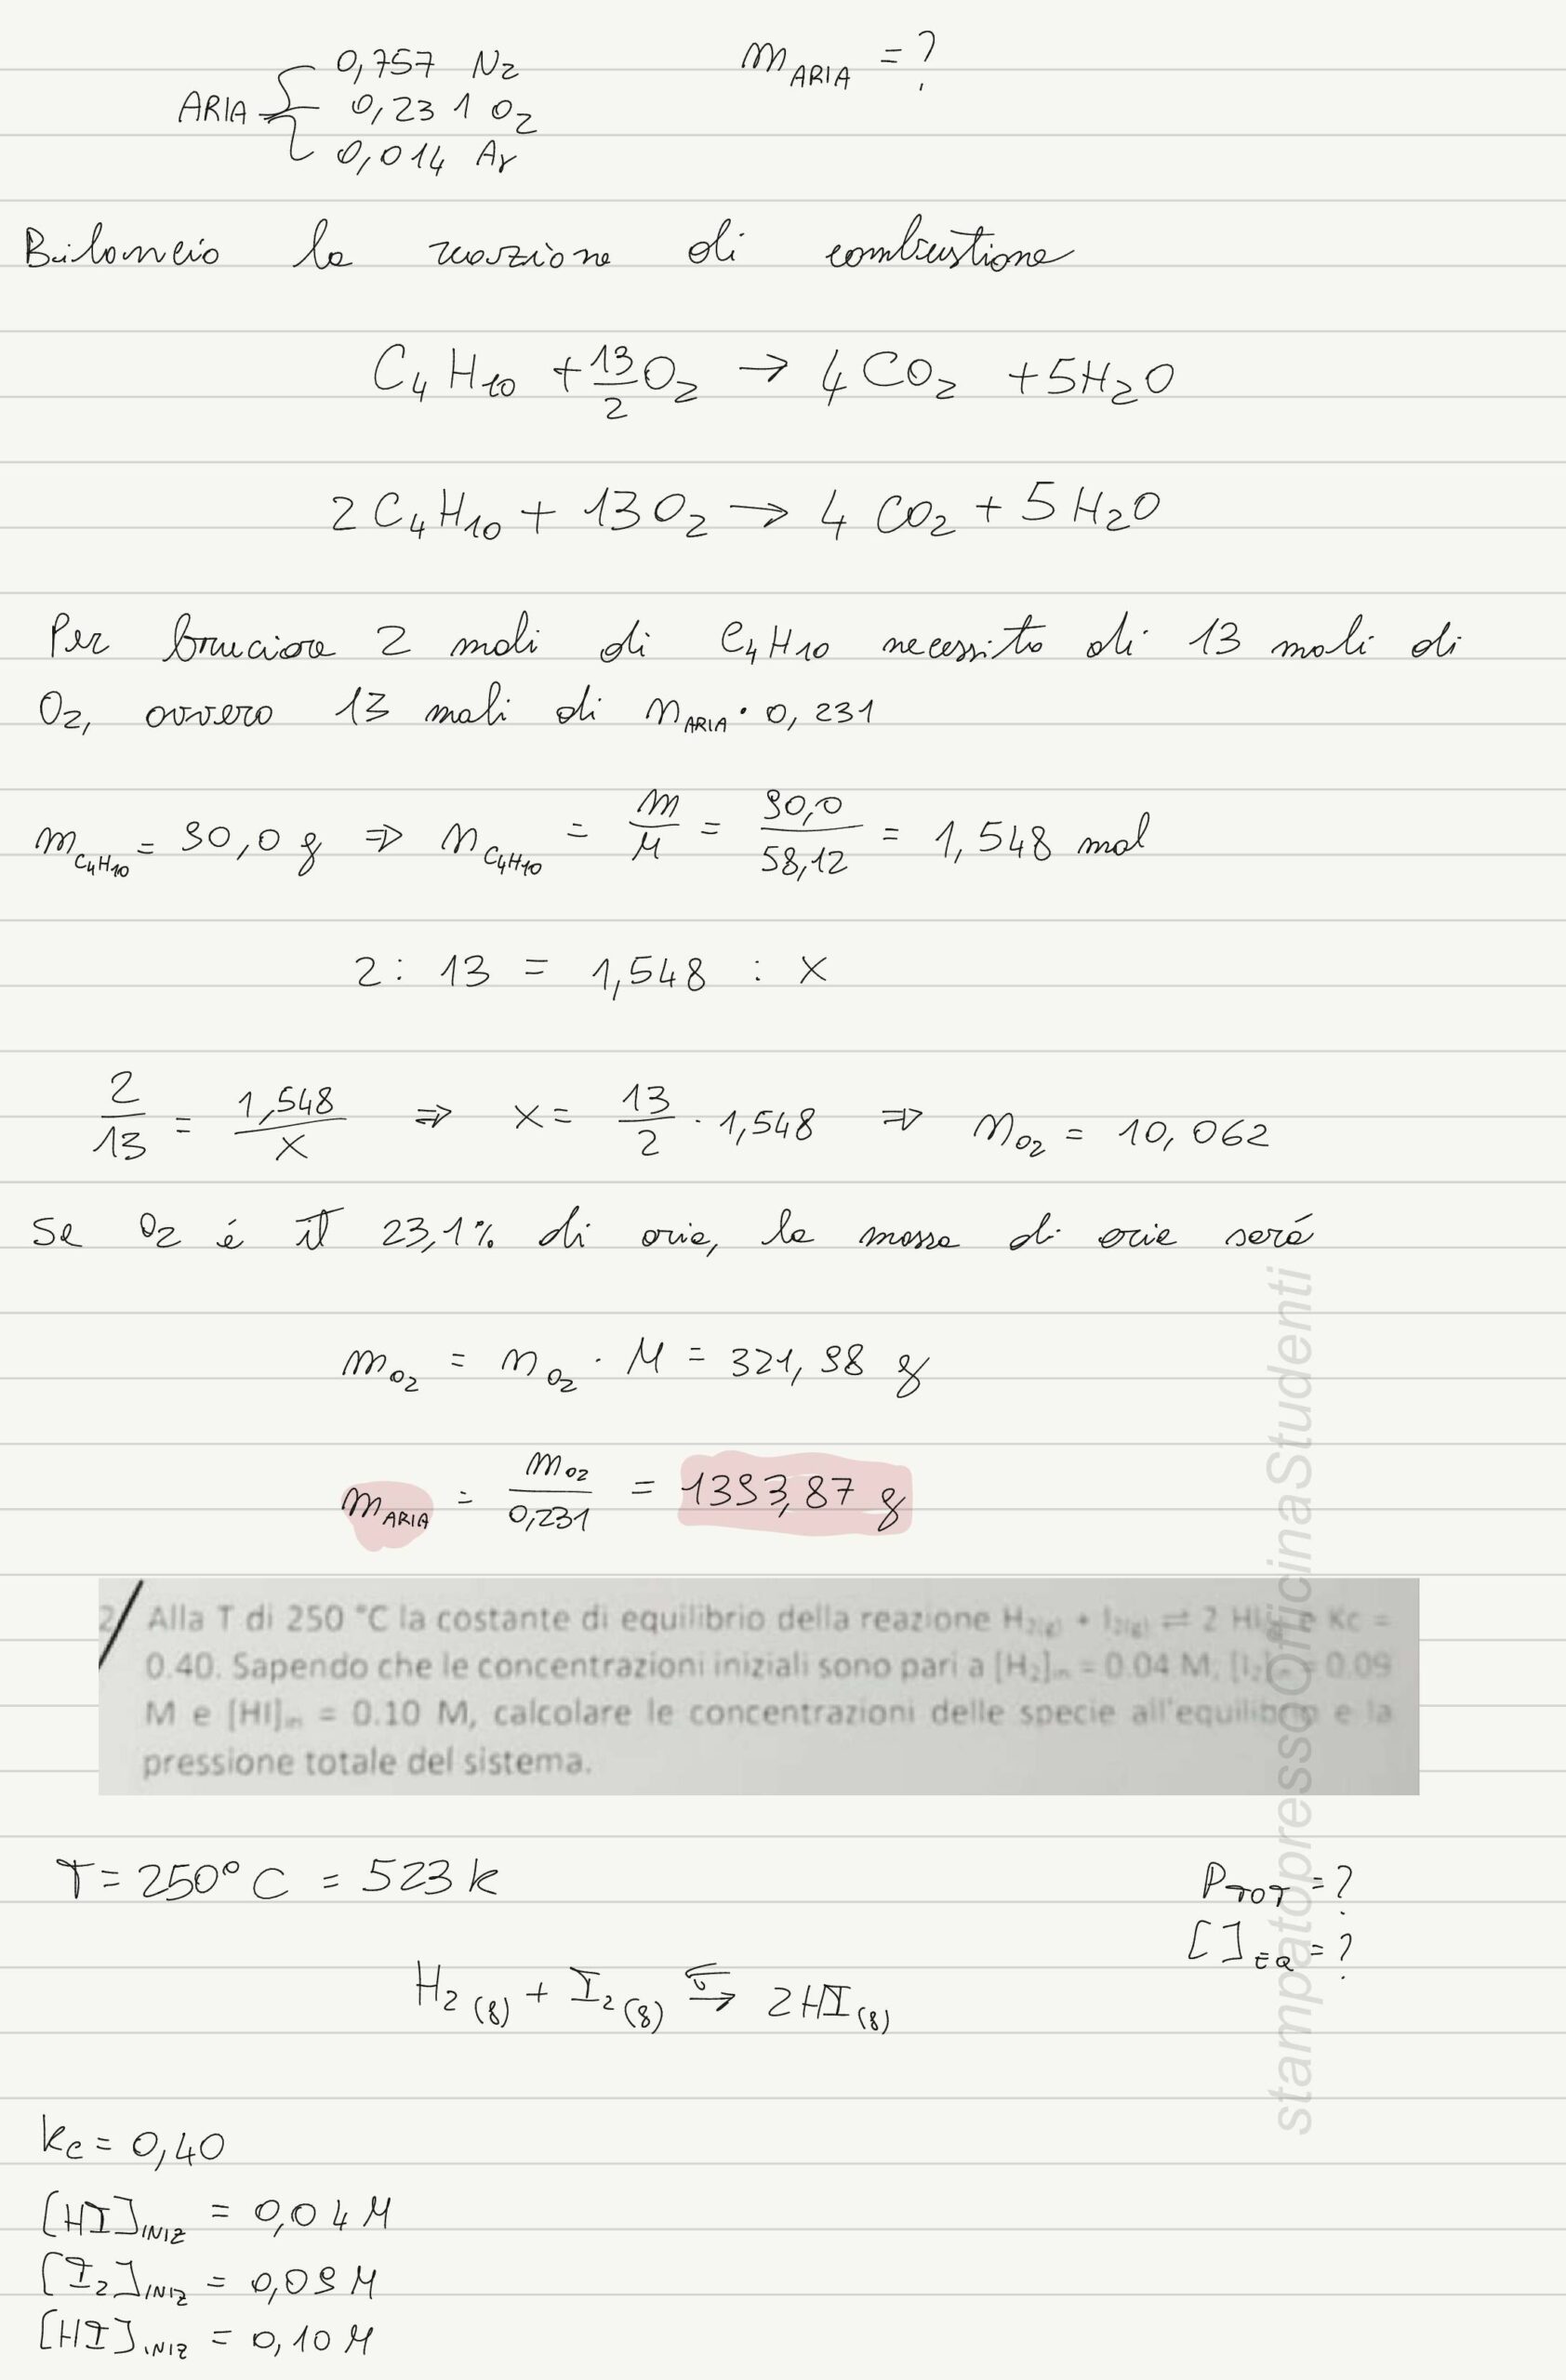 ARIA { 0,757 N₂ m_ARIA = ?
0,231 O₂
0,014 Ar
Bilancio la reazione di combustione
C₄H₁₀ + 13/2 O₂ → 4 CO₂ + 5H₂O
2 C₄H₁₀ + 13 O₂ → 4 CO₂ + 5 H₂O
Per bruciare 2 moli di C₄H₁₀ necessito di 13 moli di
O₂, ovvero 13 moli di n_ARIA · 0,231
m_C₄H₁₀ = 90,0 g ⇒ n_C₄H₁₀ = m/M = 90,0/58,12 = 1,548 mol
2 : 13 = 1,548 : x
2/13 = 1,548/x ⇒ x = 13/2 · 1,548 ⇒ n_O₂ = 10,062
Se O₂ é il 23,1% di aria, la massa di aria será
m_O₂ = n_O₂ · M = 321,98 g
m_ARIA = m_O₂/0,231 = 1393,87 g
2 Alla T di 250 °C la costante di equilibrio della reazione H₂(g) + I₂(g) ⇌ 2 HI(g) e Kc =
0.40. Sapendo che le concentrazioni iniziali sono pari a [H₂]in = 0.04 M, [I₂]in = 0.09
M e [HI]in = 0.10 M, calcolare le concentrazioni delle specie all'equilibrio e la
pressione totale del sistema.
T = 250° C = 523 k P_TOT = ?
[ ]_EQ = ?
H₂(g) + I₂(g) ⇆ 2HI(g)
kc = 0,40
[HI]INIZ = 0,04 M
[I₂]INIZ = 0,09 M
[HI]INIZ = 0,10 M
stampatopressoOfficinaStudenti